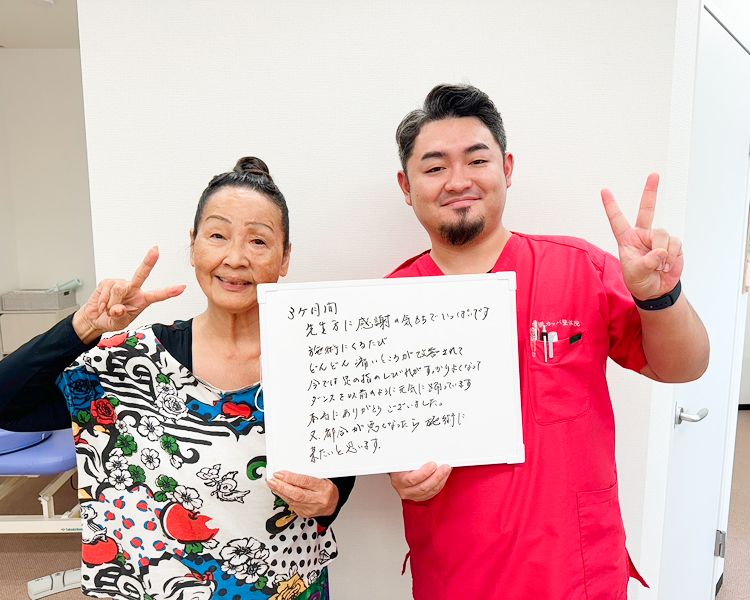 3ヶ月間
先生方に感謝の気もちでいっぱいです
施術にくるたび
どんどん痛いところが改善されて
今では足の指のしびれがすっかりよくなって
ダンスを以前のように元気に踊っています
本当にありがとうございました。
又、部分が悪くなったら施術に
来たいと思います。
カッパ整体院